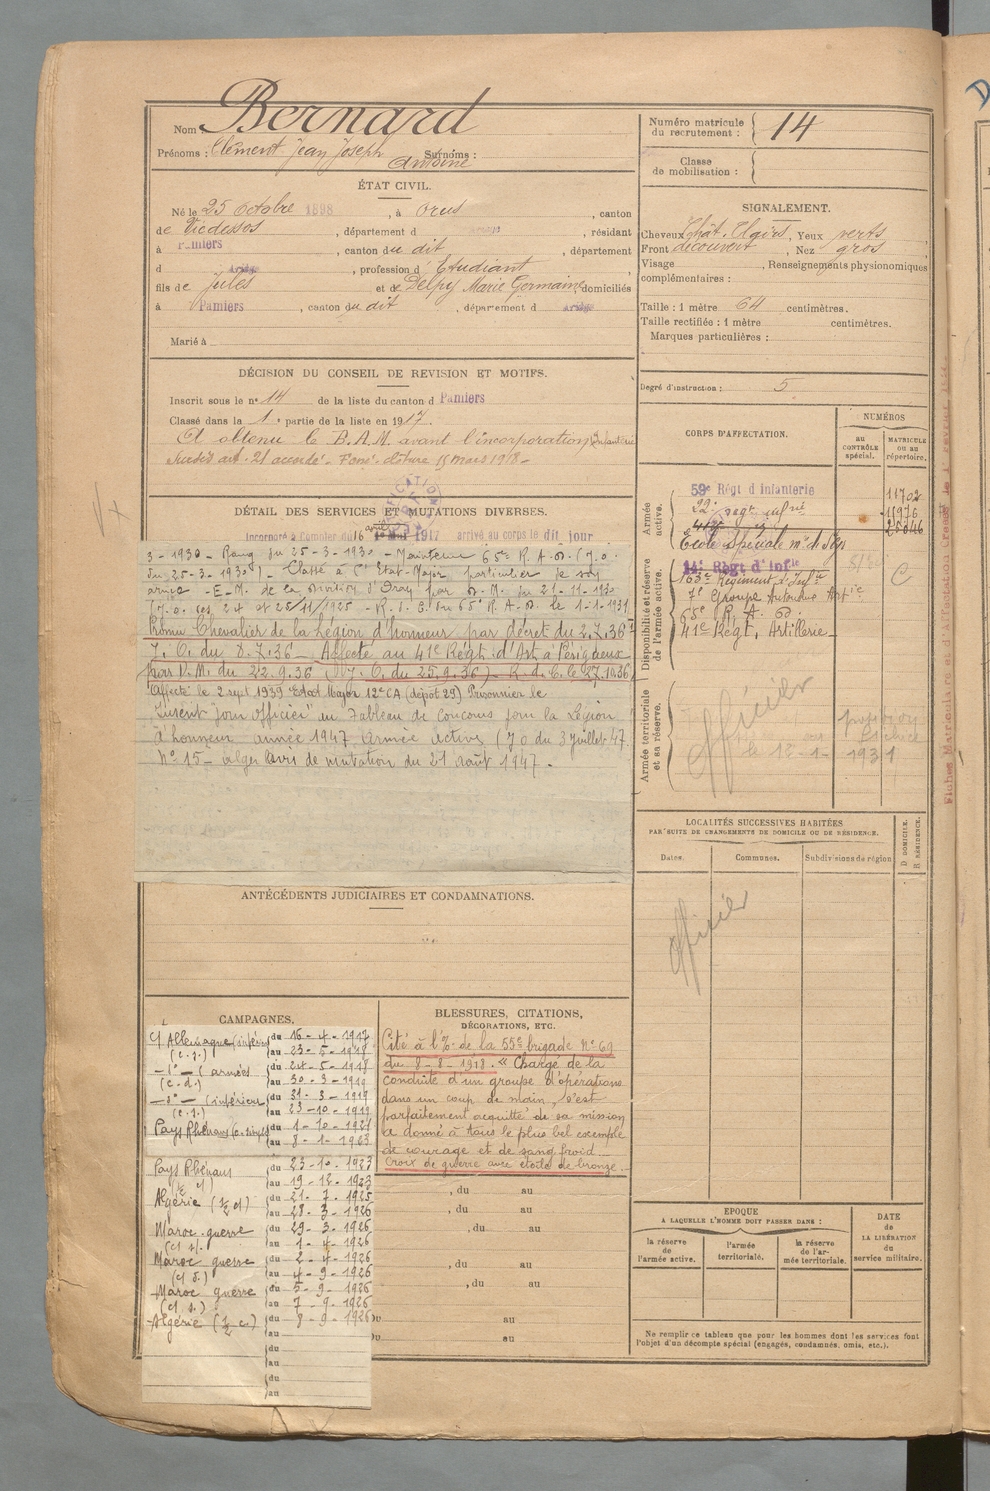 Nom : Bernard
Prénoms : Clément Jean Joseph Antoine Surnoms :
ÉTAT CIVIL.
Né le 25 Octobre 1898, à Orus, canton
de Vicdessos, département d , résidant
à Pamiers, canton du dit, département
d Ariège, profession d'Etudiant,
fils de Jules et de Delpy Marie Germaine domiciliés
à Pamiers, canton du dit, département d Ariège
Marié à
DÉCISION DU CONSEIL DE REVISION ET MOTIFS.
Inscrit sous le n° 14 de la liste du canton d Pamiers
Classé dans la 1e partie de la liste en 1917.
A obtenu le B.A.M. avant l'incorporation, Infanterie
Sursis art. 21 accordé - clôture 15 mars 1918 -
DÉTAIL DES SERVICES ET MUTATIONS DIVERSES.
Incorporé à compter du 16 avril 1917 arrivé au corps le dit jour
3-1930 - Rang du 25-3-1930 - Maintenu 65e R.A.D. (J.O.
du 25-3-1930) - Classé à l'Etat-Major particulier de son
arme - E.M. de la Division d'Oran par D.M. du 21-11-1930
(J.O. des 24 et 25/11/1925 - R.d.C. du 65e R.A.D. le 1-1-1931
Promu Chevalier de la Légion d'honneur par décret du 2.7.36
J.O. du 8.7.36 - Affecté au 41e Régt d'Art. à Périgueux
par D.M. du 22.9.36 (J.O. du 25.9.36) - R.d.C. le 27.10.36
Affecté le 2 sept 1939 Etat Major 12e CA (dépôt 29) Prisonnier le
"Officier" au Tableau de Concours pour la Légion
d'honneur année 1947 Armée Active (JO du 3 juillet 47
N° 15 - Alger Avis de mutation du 21 août 1947 -
ANTÉCÉDENTS JUDICIAIRES ET CONDAMNATIONS.
CAMPAGNES.
C/ Allemagne (intérieur) du 16-4-1917
(c.s.) au 23-5-1918
-d°- (armées du 24-5-1918
(c.d.) au 30-3-1919
-d°- (intérieur du 31-3-1919
(c.s.) au 23-10-1919
Pays Rhénans (c. simple) du 1-10-1921
au 8-1-1923
Pays Rhénans du 23-10-1923
(½ c) au 19-12-1923
Algérie (½ c) du 21-7-1925
au 28-3-1926
Maroc guerre du 29-3-1926
(c/ s.) au 1-4-1926
Maroc guerre du 2-4-1926
(c/ d.) au 4-9-1926
Maroc guerre du 5-9-1926
(c/ s.) au 7-9-1926
Algérie (½ c.) du 8-9-1926
au
du
au
du
au
BLESSURES, CITATIONS,
DÉCORATIONS, ETC.
Cité à l'O. de la 55e brigade N° 69
du 8-8-1918. « Chargé de la
conduite d'un groupe d'opérations
dans un coup de main, s'est
parfaitement acquitté de sa mission
a donné à tous le plus bel exemple
de courage et de sang froid.
Croix de guerre avec étoile de bronze.
, du au
, du au
, du au
, du au
, du au
au
au
Numéro matricule
du recrutement : 14
Classe
de mobilisation :
SIGNALEMENT.
Cheveux Chât. Clairs, Yeux verts
Front découvert, Nez gros
Visage , Renseignements physionomiques
complémentaires :
Taille : 1 mètre 64 centimètres.
Taille rectifiée : 1 mètre centimètres.
Marques particulières :
Degré d'instruction : 5
CORPS D'AFFECTATION.
NUMÉROS
au CONTRÔLE spécial.
MATRICULE ou au répertoire.
Armée active.
59e Régt d'infanterie 11702
22e regt infrie 11976
25046
Ecole Spéciale
Disponibilité et réserve de l'armée active.
14e Régt d'Infie
163e Régiment d'Infie C
7e Groupe Autonome Artie
65e R.A.D.
41e Régt, Artillerie -
Armée territoriale et sa réserve.
Officier
le 12-1-1931
LOCALITÉS SUCCESSIVES HABITÉES
PAR SUITE DE CHANGEMENTS DE DOMICILE OU DE RÉSIDENCE.
Dates.
Communes.
Subdivisions de région
D. DOMICILE.
R. RÉSIDENCE.
Officier
EPOQUE
A LAQUELLE L'HOMME DOIT PASSER DANS :
la réserve de l'armée active.
l'armée territoriale.
la réserve de l'armée territoriale.
DATE
de
LA LIBÉRATION
du
service militaire.
Ne remplir ce tableau que pour les hommes dont les services font
l'objet d'un décompte spécial (engagés, condamnés, omis, etc.).